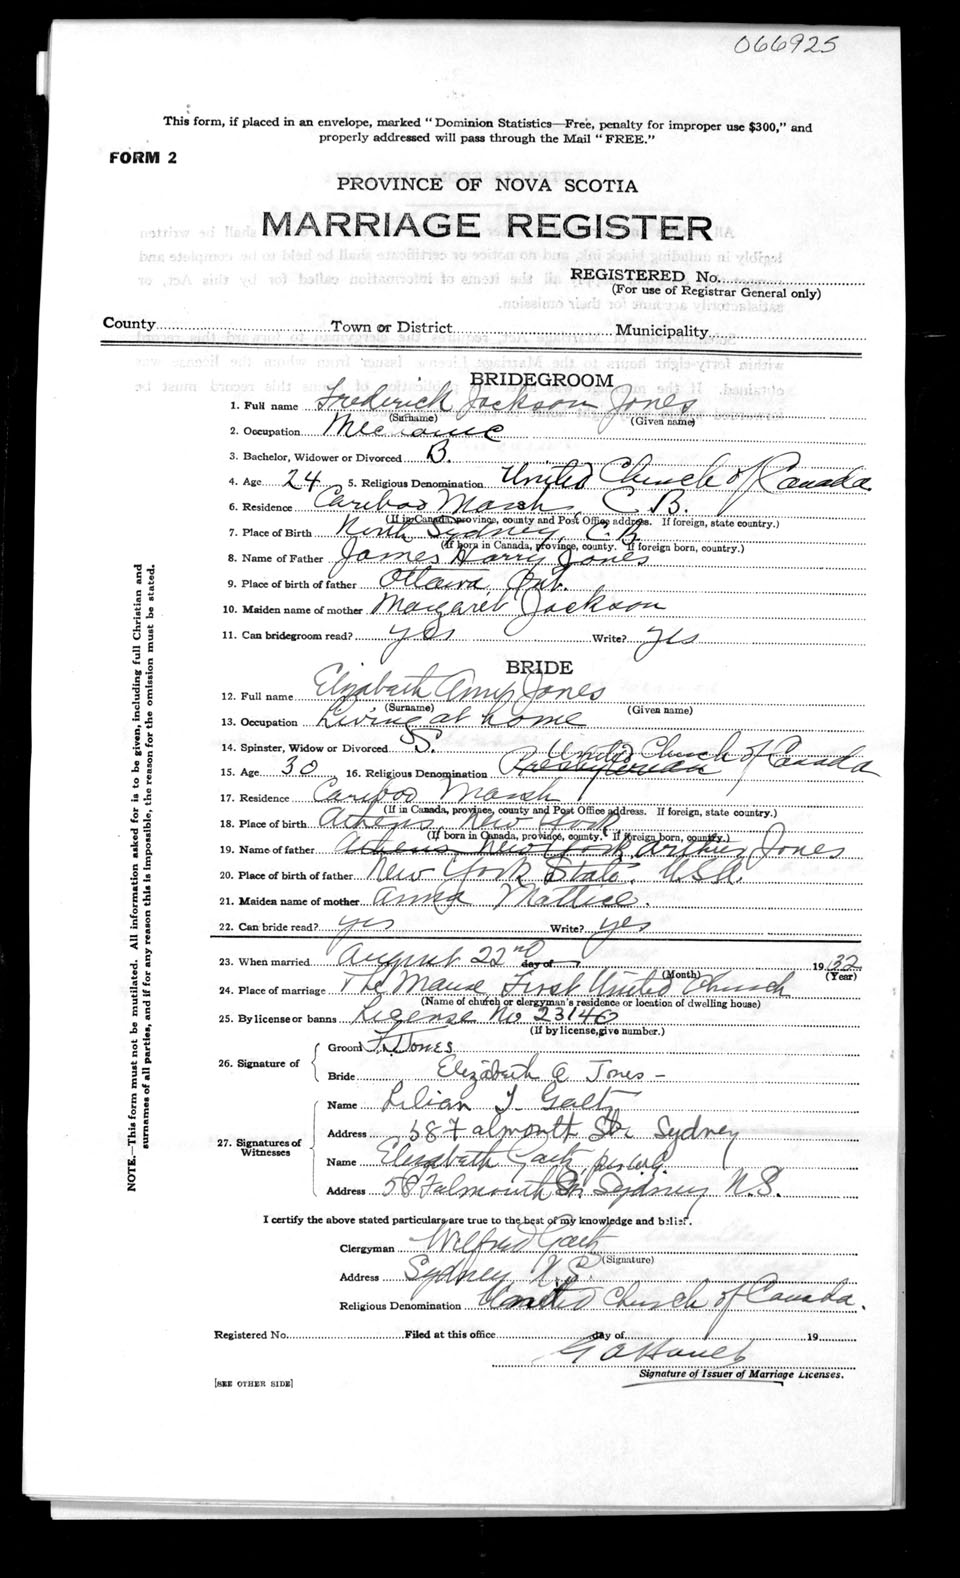 066925
This form, if placed in an envelope, marked "Dominion Statistics—Free, penalty for improper use $300," and
properly addressed will pass through the Mail "FREE."
FORM 2
PROVINCE OF NOVA SCOTIA
MARRIAGE REGISTER
REGISTERED No.
(For use of Registrar General only)
County Town or District Municipality
BRIDEGROOM
1. Full name Frederick Jackson Jones
(Surname) (Given name)
2. Occupation Mechanic
3. Bachelor, Widower or Divorced B.
4. Age 24 5. Religious Denomination United Church of Canada
6. Residence Cariboo Marsh, C. B.
(If in Canada, province, county and Post Office address. If foreign, state country.)
7. Place of Birth North Sydney, C. B.
(If born in Canada, province, county. If foreign born, country.)
8. Name of Father James Harry Jones
9. Place of birth of father Ottawa, Ont.
10. Maiden name of mother Margaret Jackson
11. Can bridegroom read? yes Write? yes
BRIDE
12. Full name Elizabeth Amy Jones
(Surname) (Given name)
13. Occupation Living at home
14. Spinster, Widow or Divorced S.
United Church of Canada
15. Age 30 16. Religious Denomination Presbyterian
17. Residence Cariboo Marsh
(If in Canada, province, county and Post Office address. If foreign, state country.)
18. Place of birth Athens, New York
(If born in Canada, province, county. If foreign born, country.)
19. Name of father Athens New York Archie Jones
20. Place of birth of father New York State. USA.
21. Maiden name of mother Anna Mattice.
22. Can bride read? yes Write? yes
23. When married August 22nd day of 1932
(Month) (Year)
24. Place of marriage The Manse First United Church
(Name of church or clergyman's residence or location of dwelling house)
25. By license or banns License No 23146
(If by license, give number.)
26. Signature of
Groom F. Jones
Bride Elizabeth A Jones -
27. Signatures of Witnesses
Name Lilian I. Gaetz
Address 58 Falmouth St. Sydney
Name Elizabeth Gaetz, per W.G.
Address 58 Falmouth St. Sydney N.S.
I certify the above stated particulars are true to the best of my knowledge and belief.
Clergyman Wilfred Gaetz
(Signature)
Address Sydney N.S.
Religious Denomination United Church of Canada.
Registered No. Filed at this office day of 19
Signature of Issuer of Marriage Licenses.
[SEE OTHER SIDE]
NOTE.—This form must not be mutilated. All information asked for is to be given, including full Christian and
surnames of all parties, and if for any reason this is impossible, the reason for the omission must be stated.